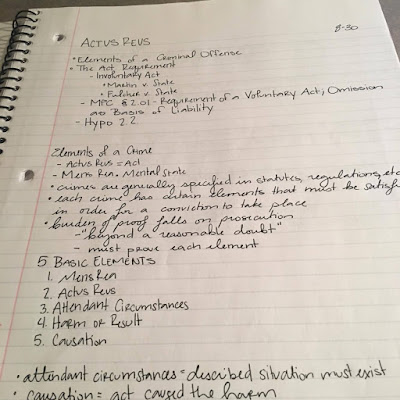 8-30
ACTUS REUS
• Elements of a Criminal Offense
• The Act Requirement
- Involuntary Act
• Martin v. State
• Fulcher v. State
- MPC § 2.01 - Requirement of a Voluntary Act; Omission
as Basis of Liability
- Hypo 2.2
Elements of a Crime
- Actus Reus = Act
- Mens Rea = Mental State
• crimes are generally specified in statutes, regulations, etc
• each crime has certain elements that must be satisf
in order for a conviction to take place
• burden of proof falls on prosecution
- "beyond a reasonable doubt"
- must prove each element
5 BASIC ELEMENTS
1. Mens Rea
2. Actus Reus
3. Attendant Circumstances
4. Harm or Result
5. Causation
• attendant circumstances = described situation must exist
• causation = act caused the harm